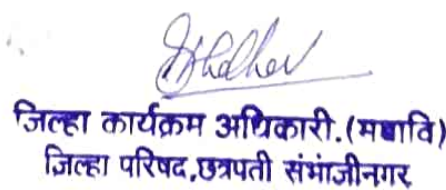 जिल्हा कार्यक्रम अधिकारी.(मबावि)
जिल्हा परिषद,छत्रपती संभाजीनगर